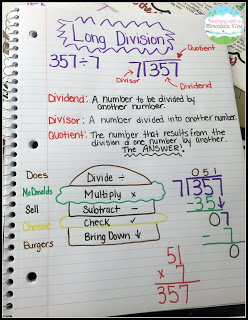 Teaching with a
Mountain View
Long Division
Quotient
357÷7
7)357
Divisor
Dividend
Dividend: A number to be divided by
another number.
Divisor: A number divided into another number.
Quotient: The number that results from the
division of one number by another.
The ANSWER!
Does
Divide ÷
McDonalds
Multiply x
Sell
Subtract -
Cheese
Check ✓
Burgers
Bring Down ↓
051
7)357
-35↓
07
- 7
0
51
x 7
357